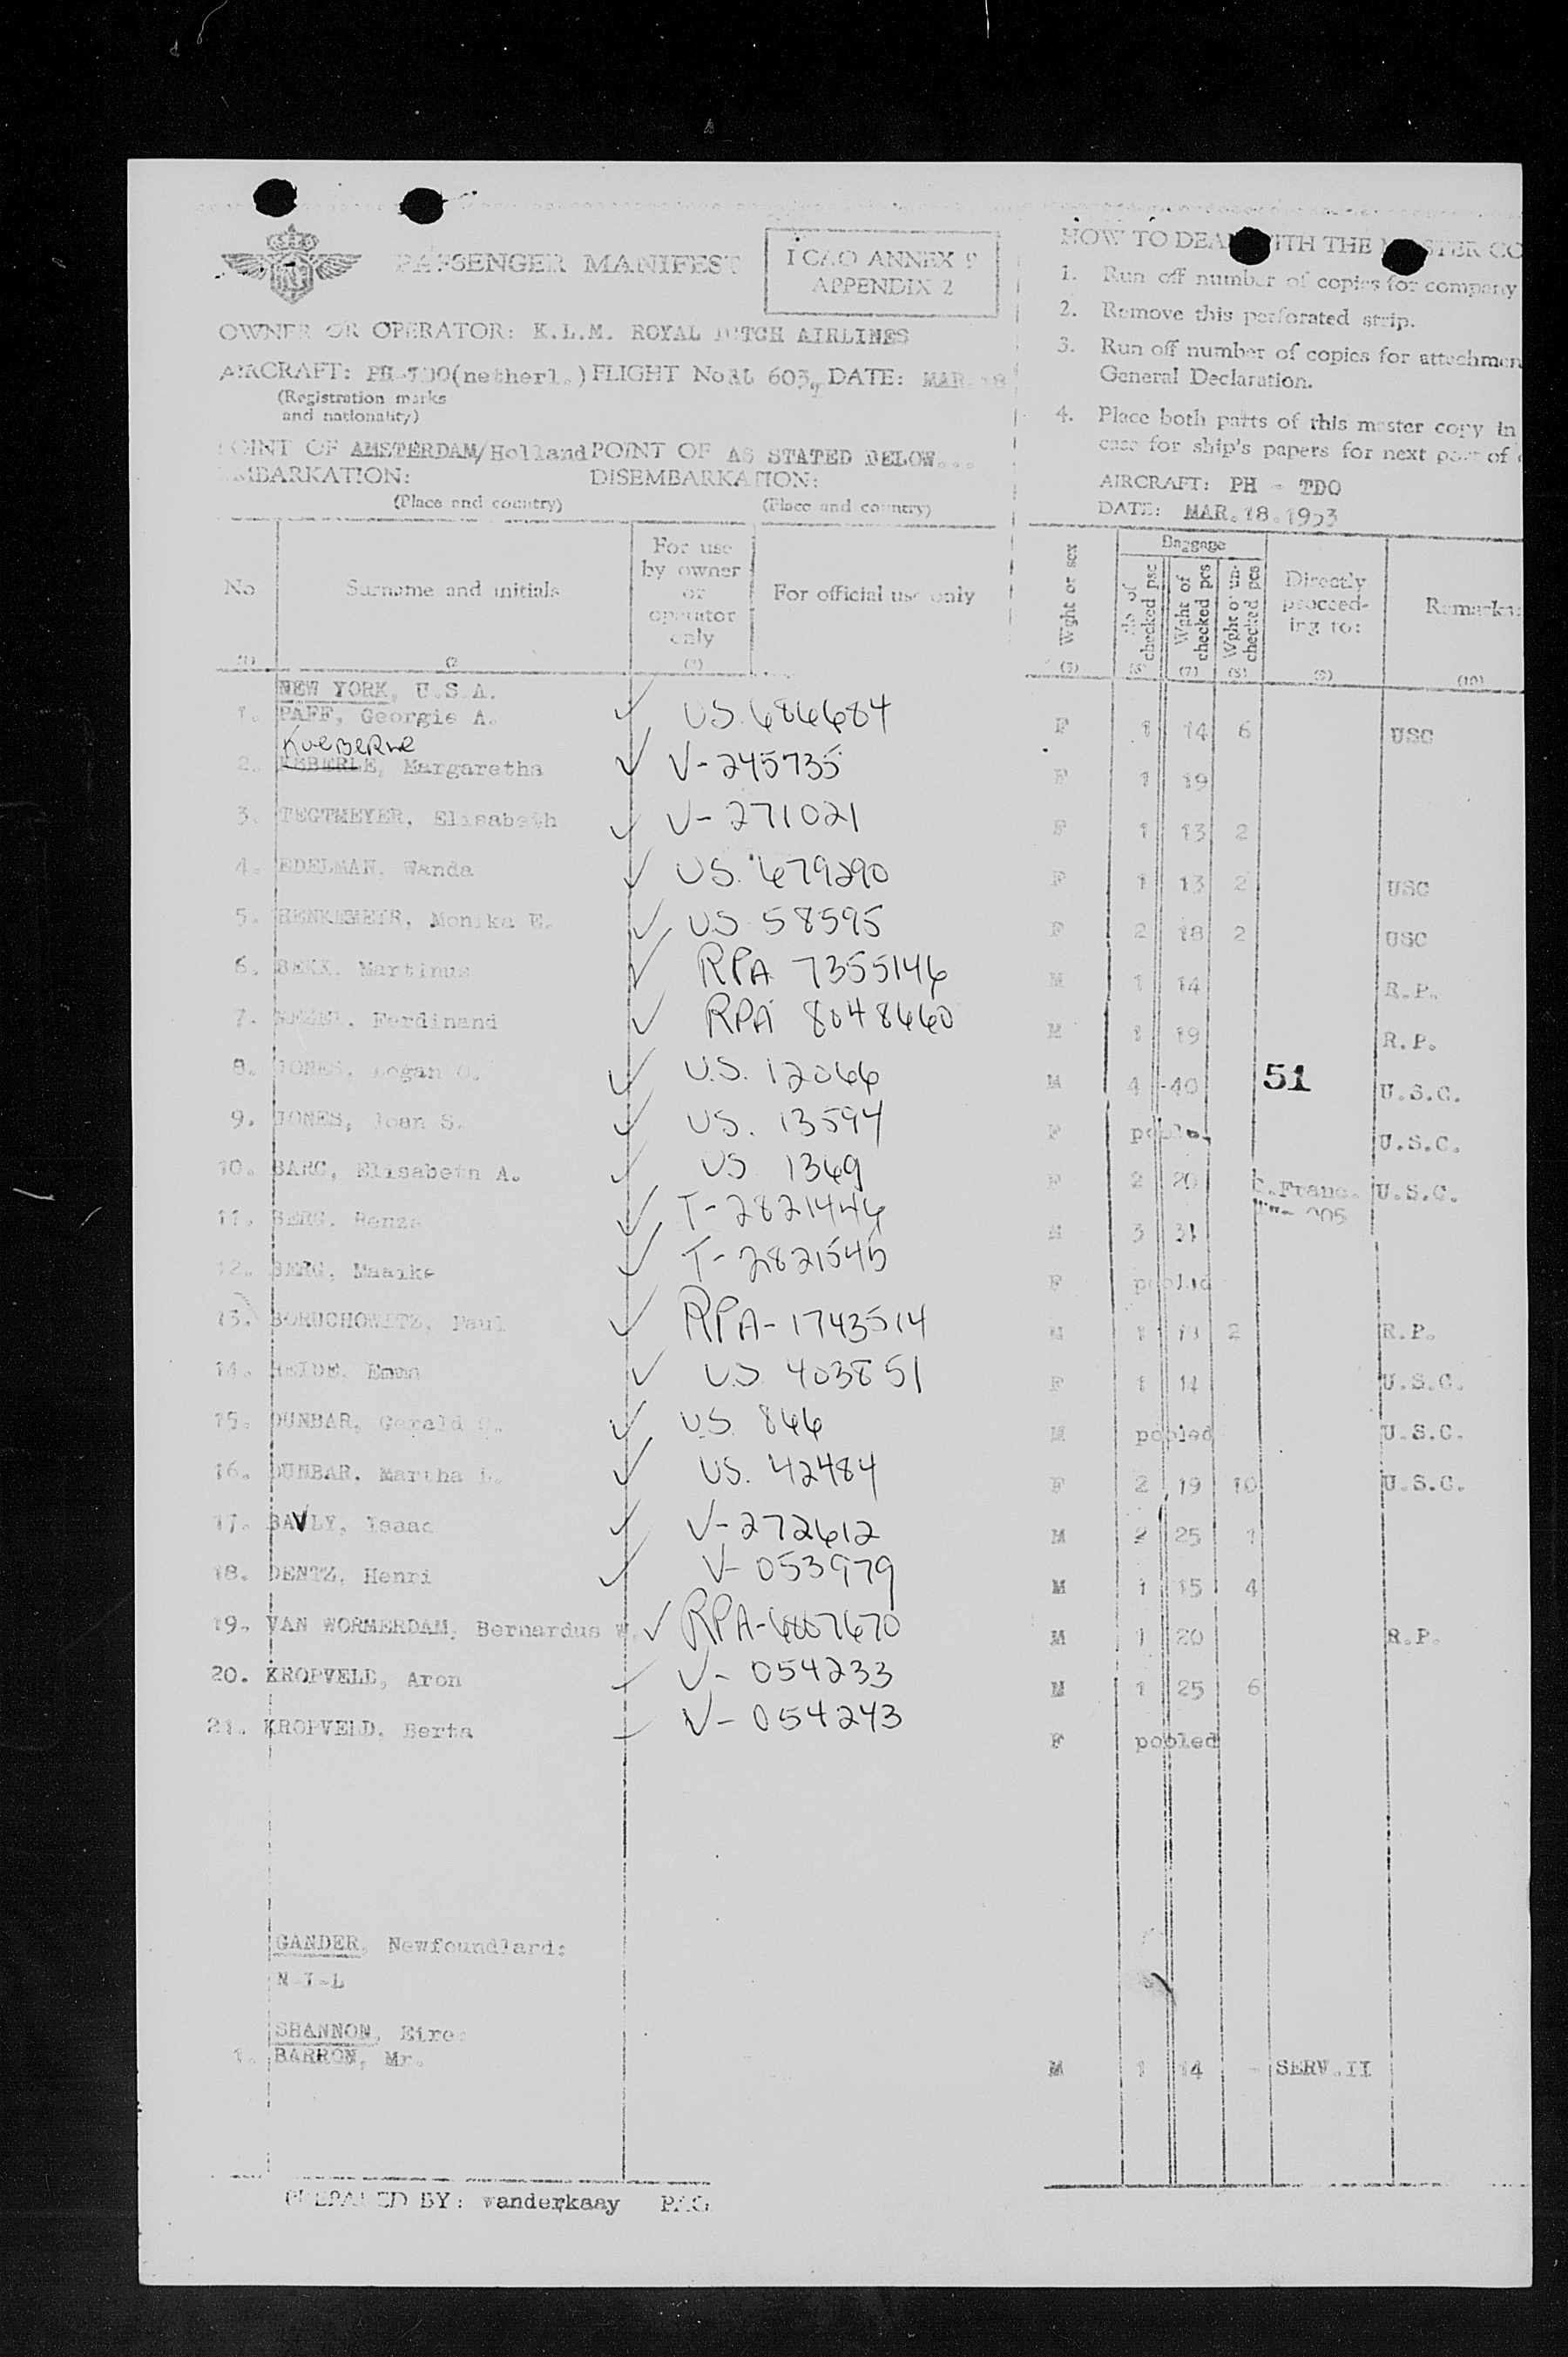 PASSENGER MANIFEST
ICAO ANNEX 9
APPENDIX 2
HOW TO DEAL WITH THE MASTER CO
1. Run off number of copies for company
2. Remove this perforated strip.
3. Run off number of copies for attachmen
General Declaration.
4. Place both parts of this master copy in
case for ship's papers for next port of
AIRCRAFT: PH - TDO
DATE: MAR.18.1953
OWNER OR OPERATOR: K.L.M. ROYAL DUTCH AIRLINES
AIRCRAFT: PH-TDO(netherl.) FLIGHT No KL 603, DATE: MAR.18
(Registration marks
and nationality)
POINT OF AMSTERDAM/Holland POINT OF AS STATED BELOW...
EMBARKATION: DISEMBARKATION:
(Place and country) (Place and country)
No Surname and initials For use by owner or operator only For official use only Wght or sex Baggage No of checked psc Wght of checked pcs Wght of un-checked pcs Directly proceed-ing to: Remarks:
(1) (2) (3) (5) (6) (7) (8) (9) (10)
NEW YORK, U.S.A.
1. PAFF, Georgie A. US. 686684 F 1 14 6 USC
2. KEBERLE, Margaretha V-245735 F 1 19
3. TEGTMEYER, Elisabeth V-271021 F 1 13 2
4. EDELMAN, Wanda US. 679290 F 1 13 2 USC
5. HENKEMEIR, Monika E. US 58595 F 2 18 2 USC
6. BEKK, Martinus RPA 7355146 M 1 14 R.P.
7. Ferdinand RPA 8048660 M 1 19 R.P.
8. JONES, Logan U.S. 12066 M 4 -40 51 U.S.C.
9. JONES, Joan S. US. 13594 F pooled U.S.C.
10. BARG, Elisabeth A. US 1369 F 2 20 S.Franc. U.S.C.
11. BERG, Renze T-2821446 M 3 31
12. BERG, Maaike T-2821545 F pooled
13. BORUCHOWITZ, Paul RPA-1743514 M 1 2 R.P.
14. HEIDE, Emma US 403851 F 1 14 U.S.C.
15. DUNBAR, Gerald US. 866 M pooled U.S.C.
16. DUNBAR, Martha L. US. 42484 F 2 19 10 U.S.C.
17. BAVLY, Isaac V-272612 M 2 25 1
18. DENTZ, Henri V-053979 M 1 15 4
19. VAN WORMERDAM, Bernardus W. RPA-6807670 M 1 20 R.P.
20. KROPVELD, Aron V-054233 M 1 25 6
21. KROPVELD, Berta V-054243 F pooled
GANDER, Newfoundland:
N-I-L
SHANNON, Eire:
1. BARRON, Mr. M 1 14 - SERV.II
PREPARED BY: vanderkaay PAG